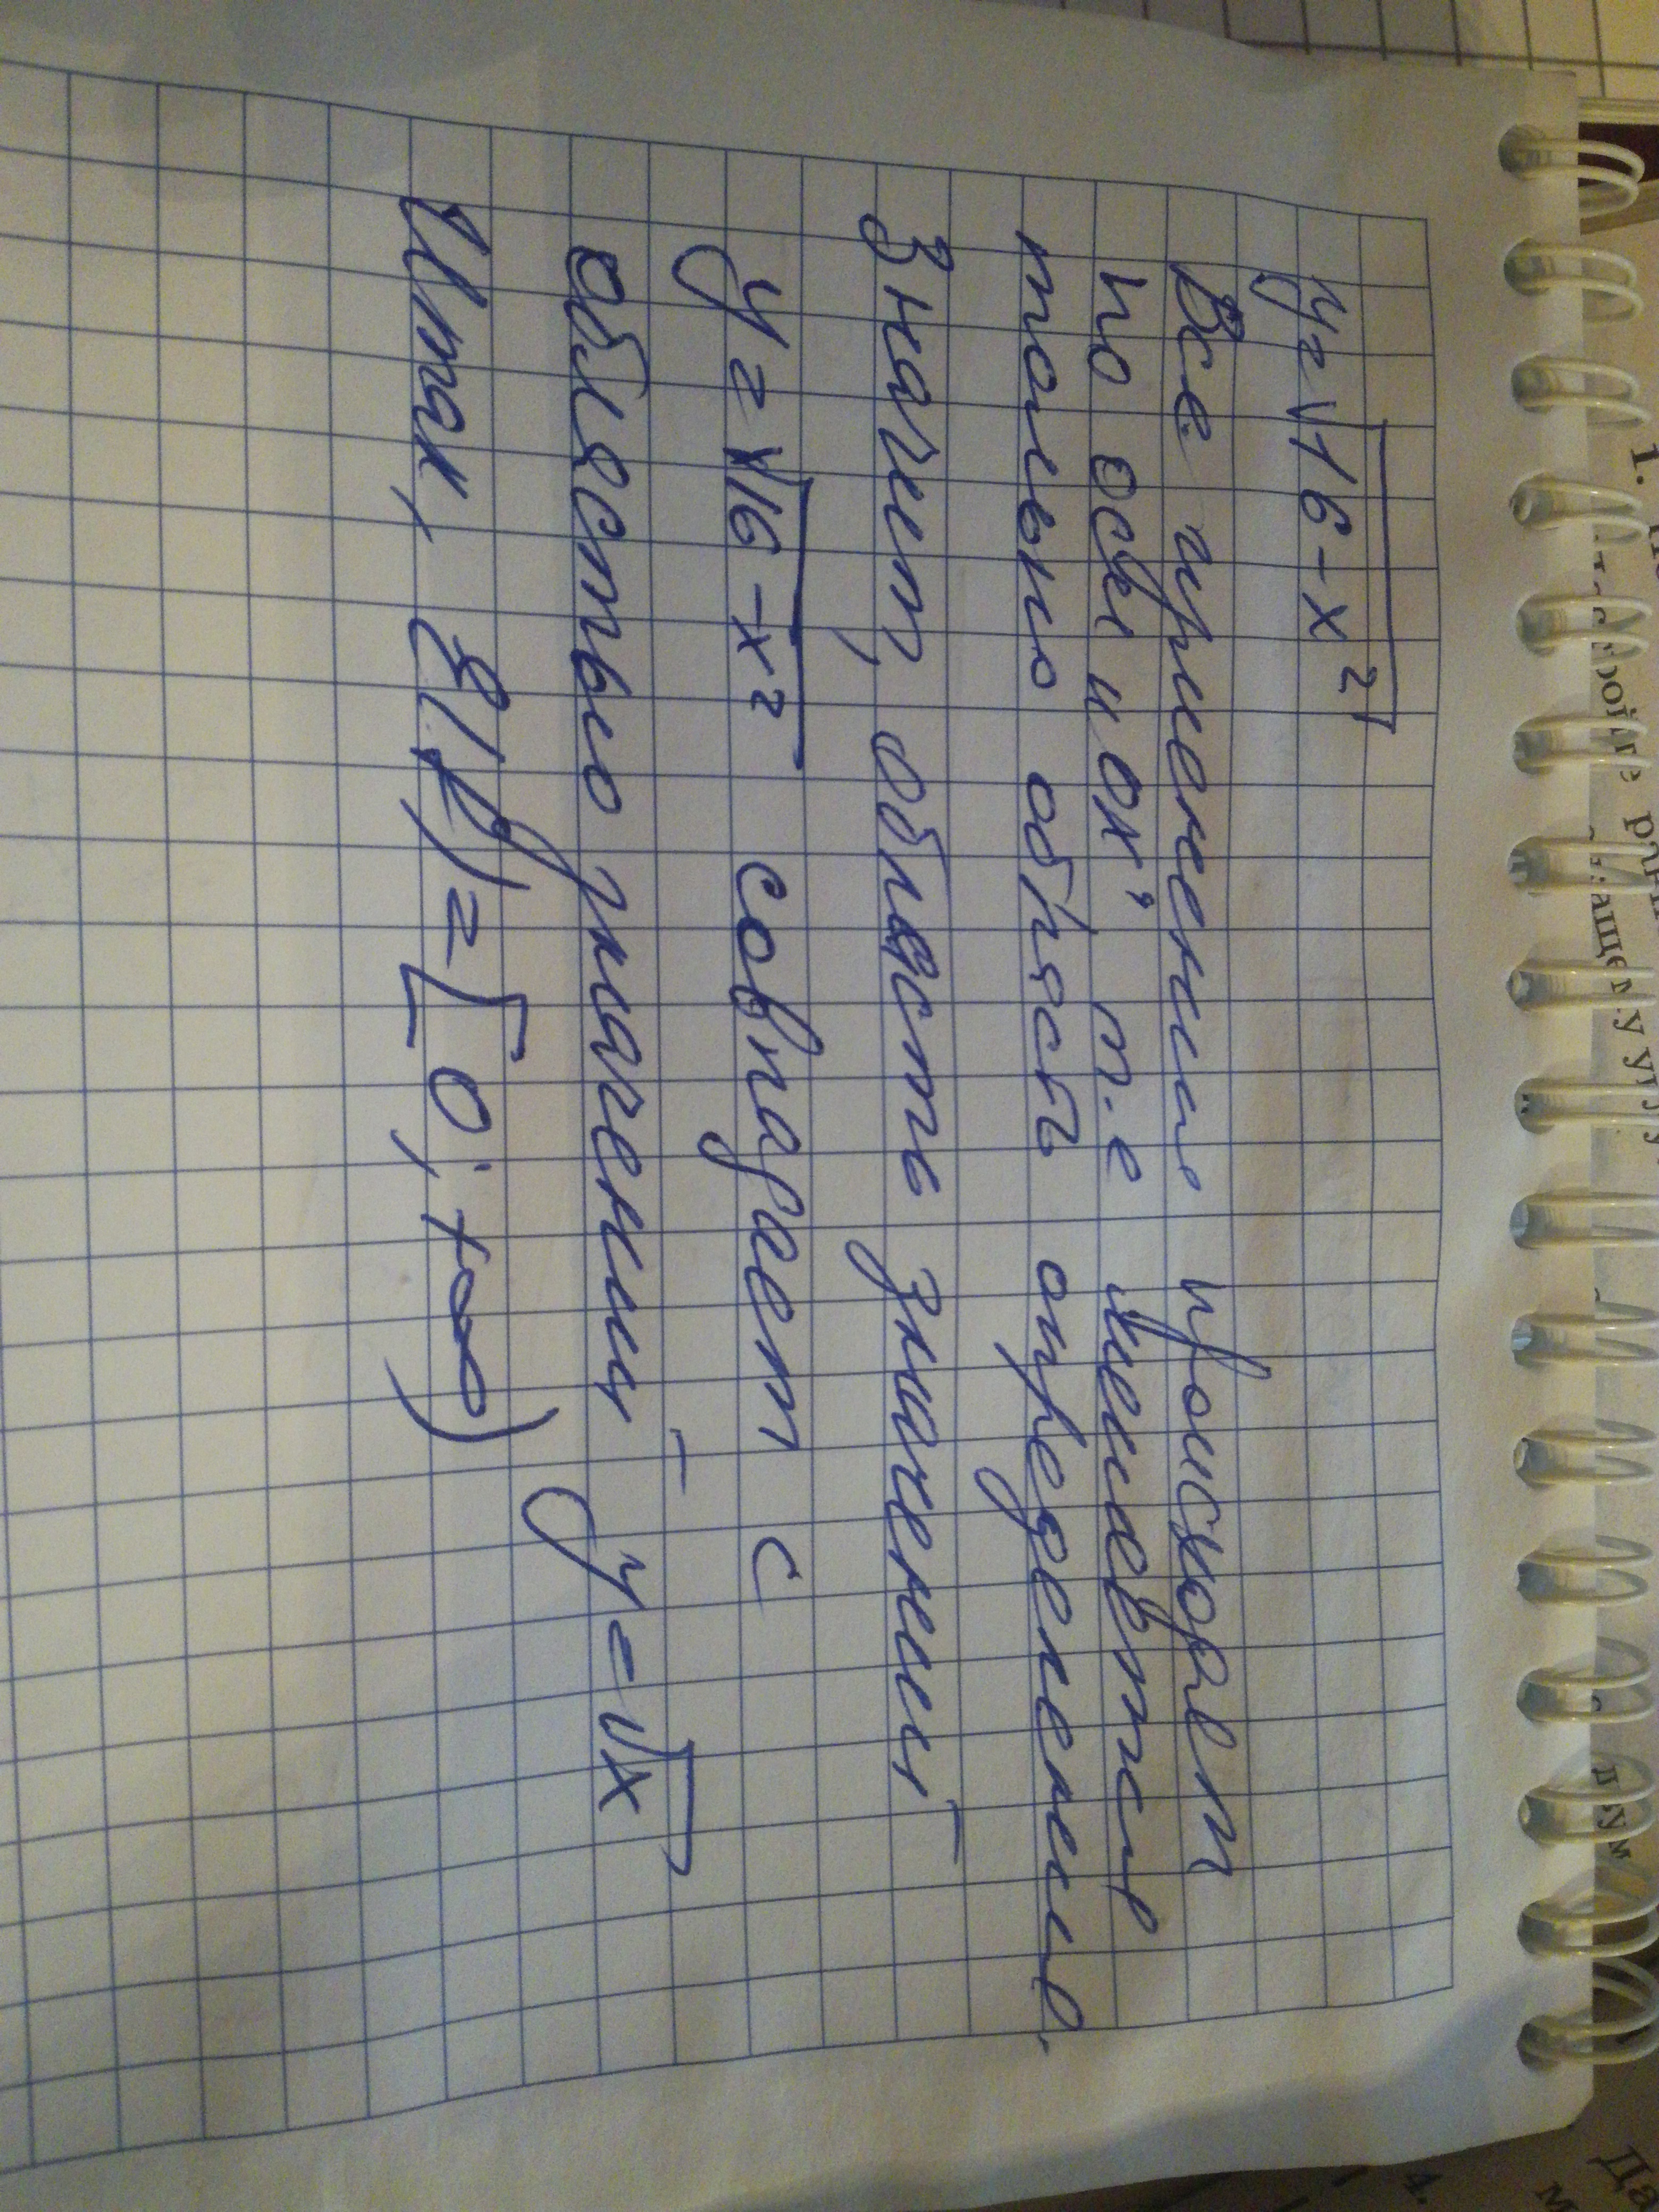 y=√16-x²
Все изменения происходят
по оси "ох", т.е меняется
только область определения.
Значит, область значений
y=√16-x² совпадает с
областью значений y=√x
Итак, E(f)=[0;+∞)